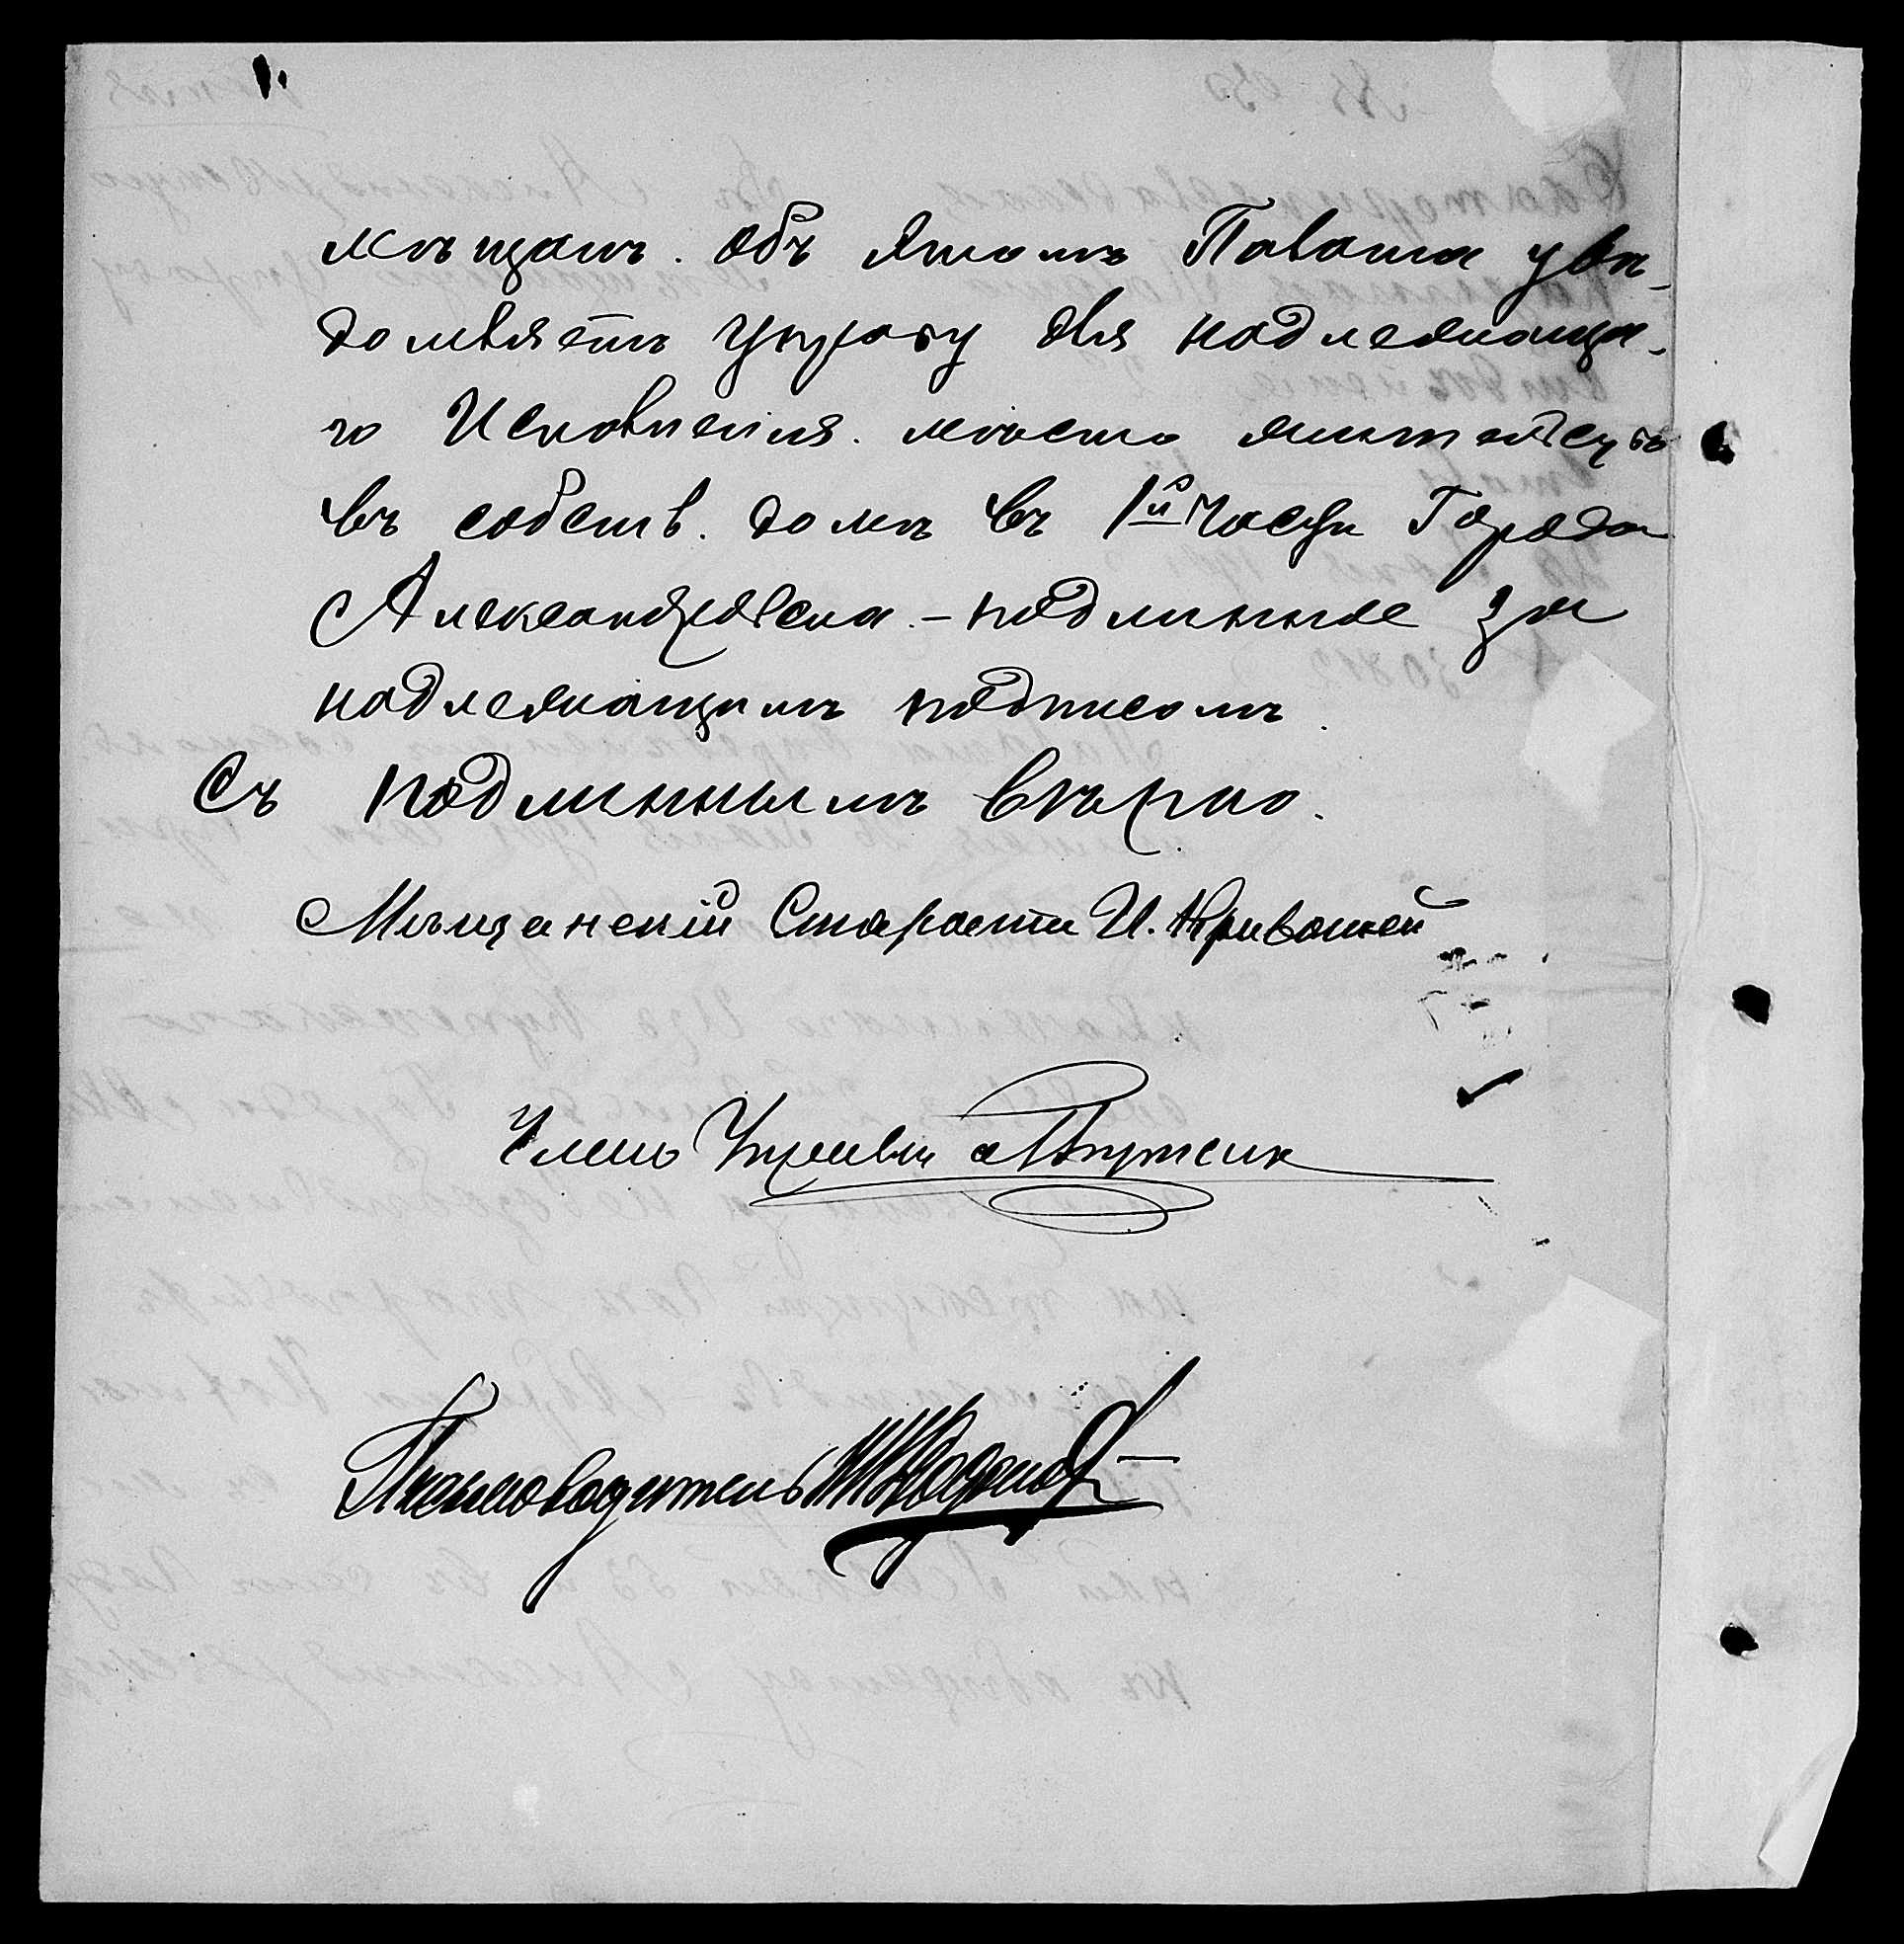 мѣщанъ. Объ этомъ Палата увѣ-
домляетъ Управу для надлежаща-
го Исполненія. мѣсто жительст.
въ собств. домѣ въ 1й Части Города
Александровска. – подлинное за
надлежащимъ подписомъ.
Съ подлиннымъ вѣрно.
Мѣщанскій Староста И. Кривошей
Членъ Управы
Письмоводитель